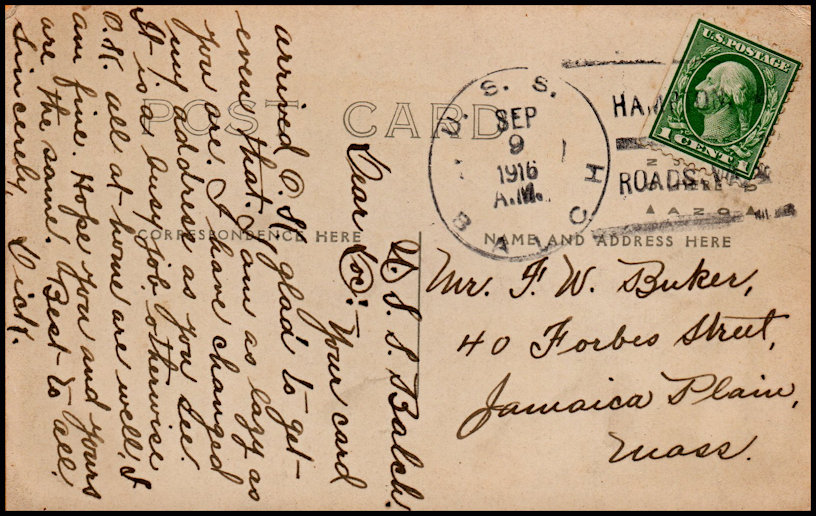 POST CARD
CORRESPONDENCE HERE
NAME AND ADDRESS HERE
U.S. POSTAGE
1 CENT 1
U. S. S. BALCH
SEP
9
1916
A.M.
HAMPTON
ROADS, VA.
U. S. S. Balch.
Dear Doc:- Your card
arrived O.K. glad to get
even that. I am as lazy as
you are. I have changed
my address as you see.
It is a busy job otherwise
O.K. all at home are well, I
am fine. Hope you and yours
are the same. Best to all.
Sincerely, Dick.
Mr. F. W. Buker,
40 Forbes Street,
Jamaica Plain,
Mass.